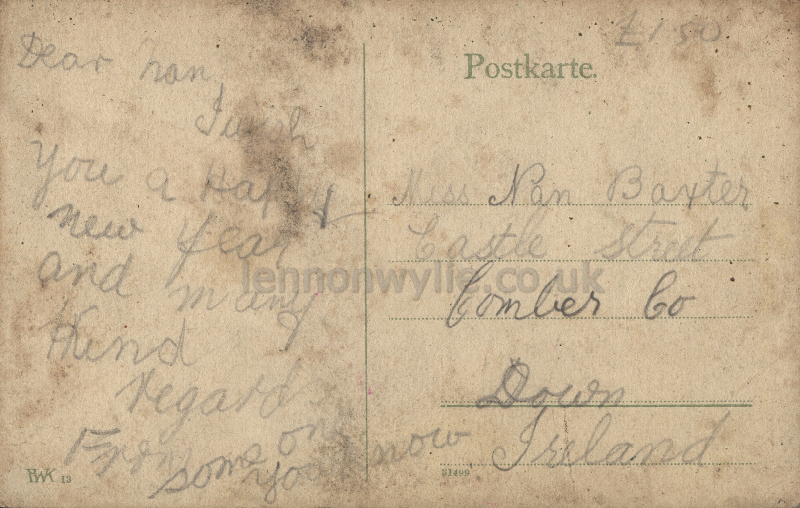 Dear nan,
I wish
You a Happy
new year
and many
Kind
regard
From
some one
you now
£1 50
Postkarte.
Miss Nan Baxter
Castle Street
Comber Co
Down
Ireland
lennonwylie.co.uk
13
31499